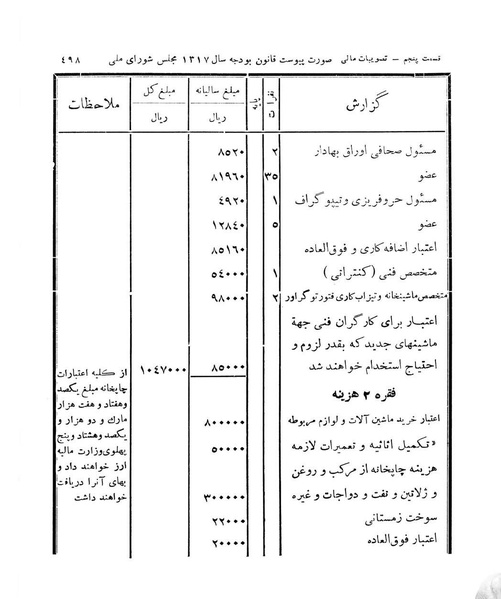 قسمت پنجم – تصویبات مالی صورت پیوست قانون بودجه سال ۱۳۱۷ مجلس شورای ملی ۴۹۸
گزارش نفرات پایه مبلغ سالیانه مبلغ کل ملاحظات
ریال ریال
مسئول صحافی اوراق بهادار ۲ ۸۵۲۰
عضو ۳۵ ۸۱۹۶۰
مسئول حروفریزی و تیپو گراف ۱ ۴۹۲۰
عضو ۵ ۱۲۸۴۰
اعتبار اضافه کاری و فوق العاده ۸۵۱۶۰
متخصص فنی (کنتراتی) ۱ ۵۴۰۰۰
متخصص ماشینخانه و تیزاب کاری فتور تو گراور ۲ ۹۸۰۰۰
اعتبار برای کارگران فنی جهة
ماشینهای جدید که بقدر لزوم و
احتیاج استخدام خواهند شد ۸۵۰۰۰ ۱۰۴۷۰۰۰
فقره ۲ هزینه
اعتبار خرید ماشین آلات و لوازم مربوطه ۸۰۰۰۰۰
« تکمیل اثاثیه و تعمیرات لازمه ۵۰۰۰۰
هزینه چاپخانه از مرکب و روغن
و ژلاتین و نفت و دواجات و غیره ۳۰۰۰۰۰
سوخت زمستانی ۲۲۰۰۰
اعتبار فوق العاده ۲۰۰۰۰
از کلیه اعتبارات
چاپخانه مبلغ یکصد
و هفتاد و هفت هزار
مارك و دو هزار و
یکصد و هشتاد و پنج
پهلوی وزارت مالیه
ارز خواهند داد و
بهای آنرا دریافت
خواهند داشت